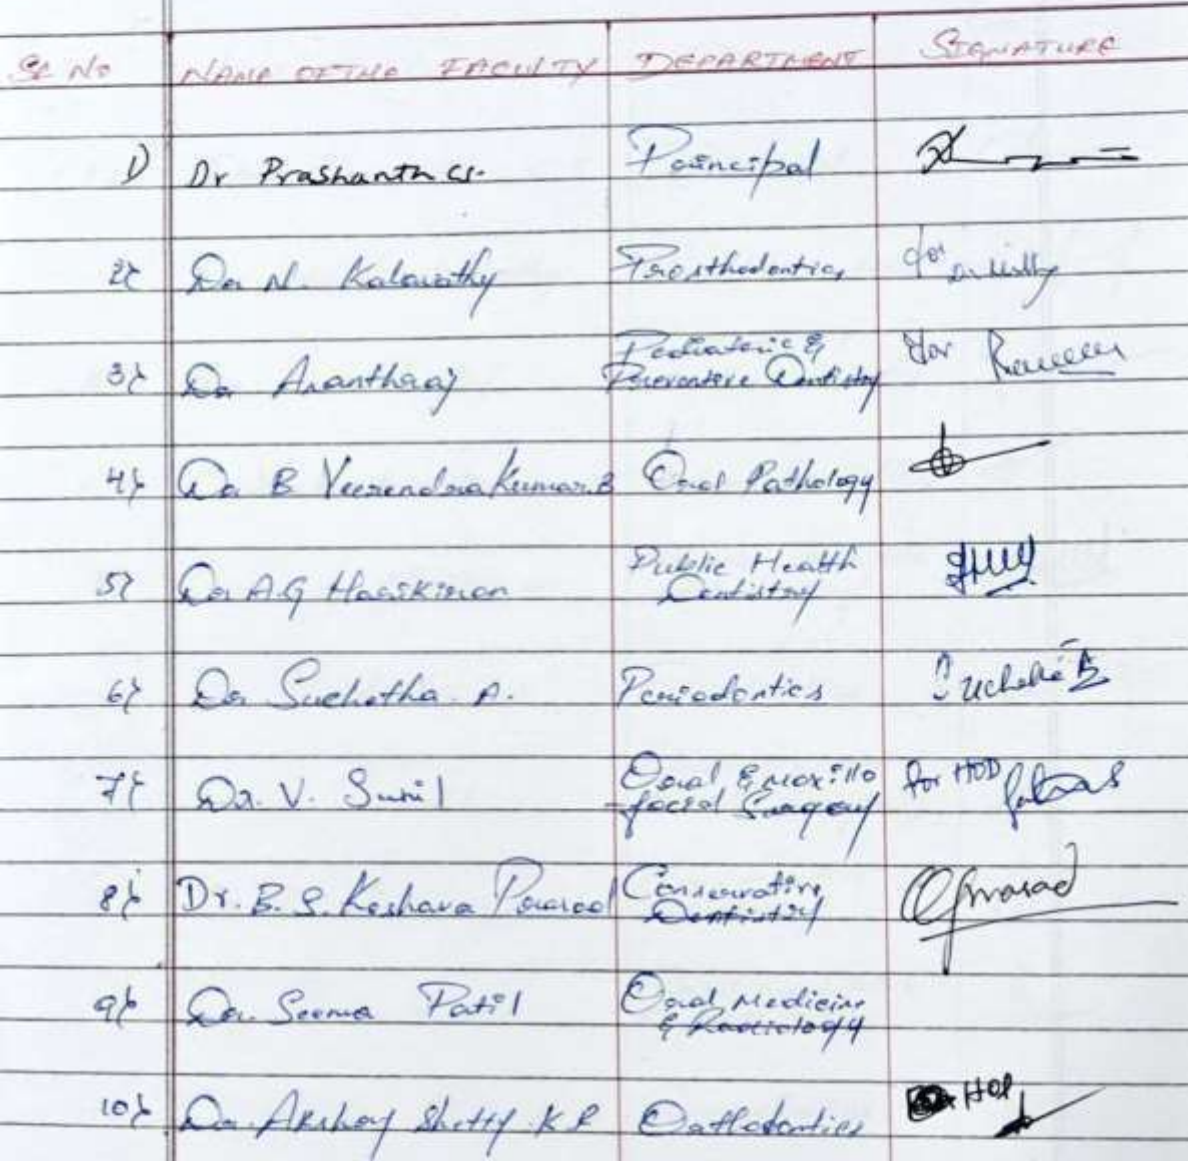 Sl No NAME OF THE FACULTY DEPARTMENT SIGNATURE
1) Dr Prashanth CS. Principal
2) Dr N. Kalavathy Prosthodontics for
3) Dr Ananthraj Pediatric &
Preventive Dentistry for
4) Dr B Veerendra Kumar.B Oral Pathology
5) Dr A.G Harikiran Public Health
Dentistry
6) Dr Suchetha. A. Periodontics Suchetha A
7) Dr. V. Sunil Oral & maxillo
-facial Surgery for HOD
8) Dr. B. S. Keshava Prasad Conservative
Dentistry
9) Dr. Seema Patil Oral Medicine
& Radiology
10) Dr. Akshay Shetty K R Orthodontics HOD